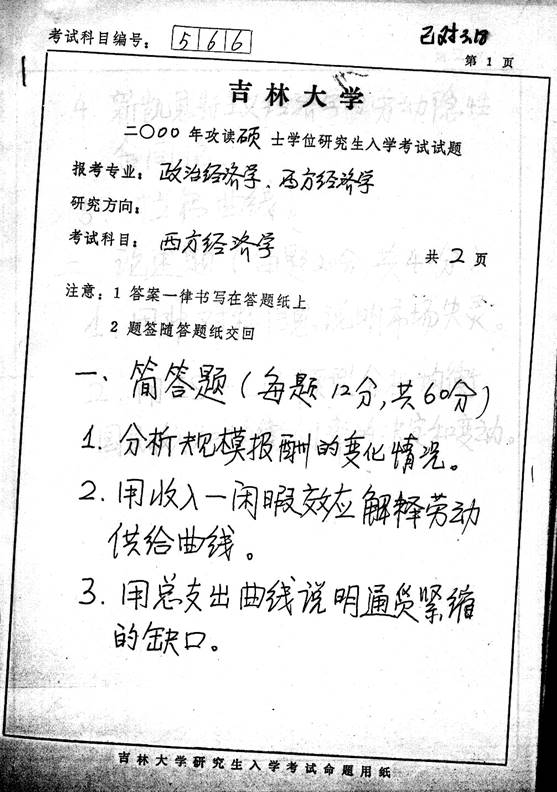 考试科目编号： 566
已对3.18
第 1 页
吉林大学
二〇〇〇年攻读硕士学位研究生入学考试试题
报考专业：政治经济学、西方经济学
研究方向：
考试科目：西方经济学
共 2 页
注意：1 答案一律书写在答题纸上
2 题签随答题纸交回
一、简答题（每题12分,共60分）
1. 分析规模报酬的变化情况。
2. 用收入一闲暇效应解释劳动
供给曲线。
3. 用总支出曲线说明通货紧缩
的缺口。
吉林大学研究生入学考试命题用纸